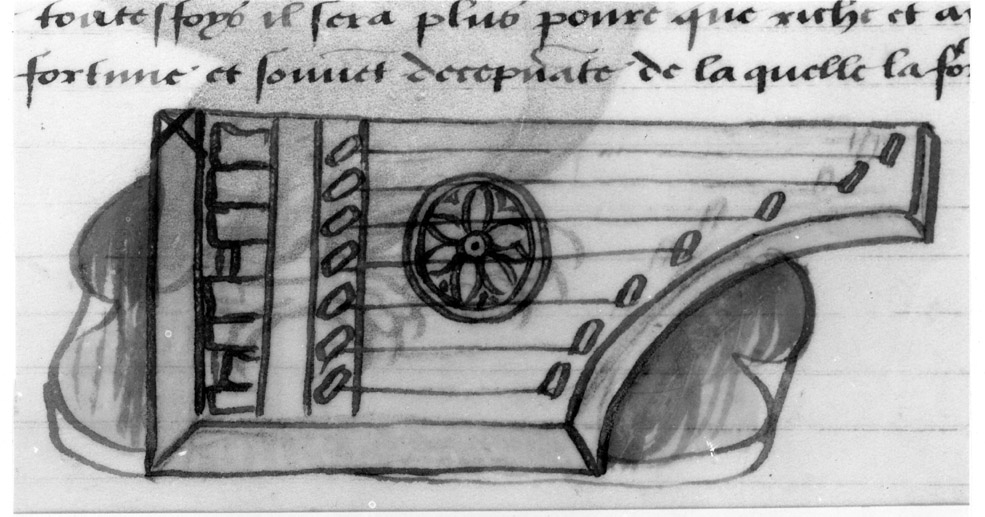 toutesfoys il sera plus poure que riche et a
fortune et souuet decepuāte de la quelle la for